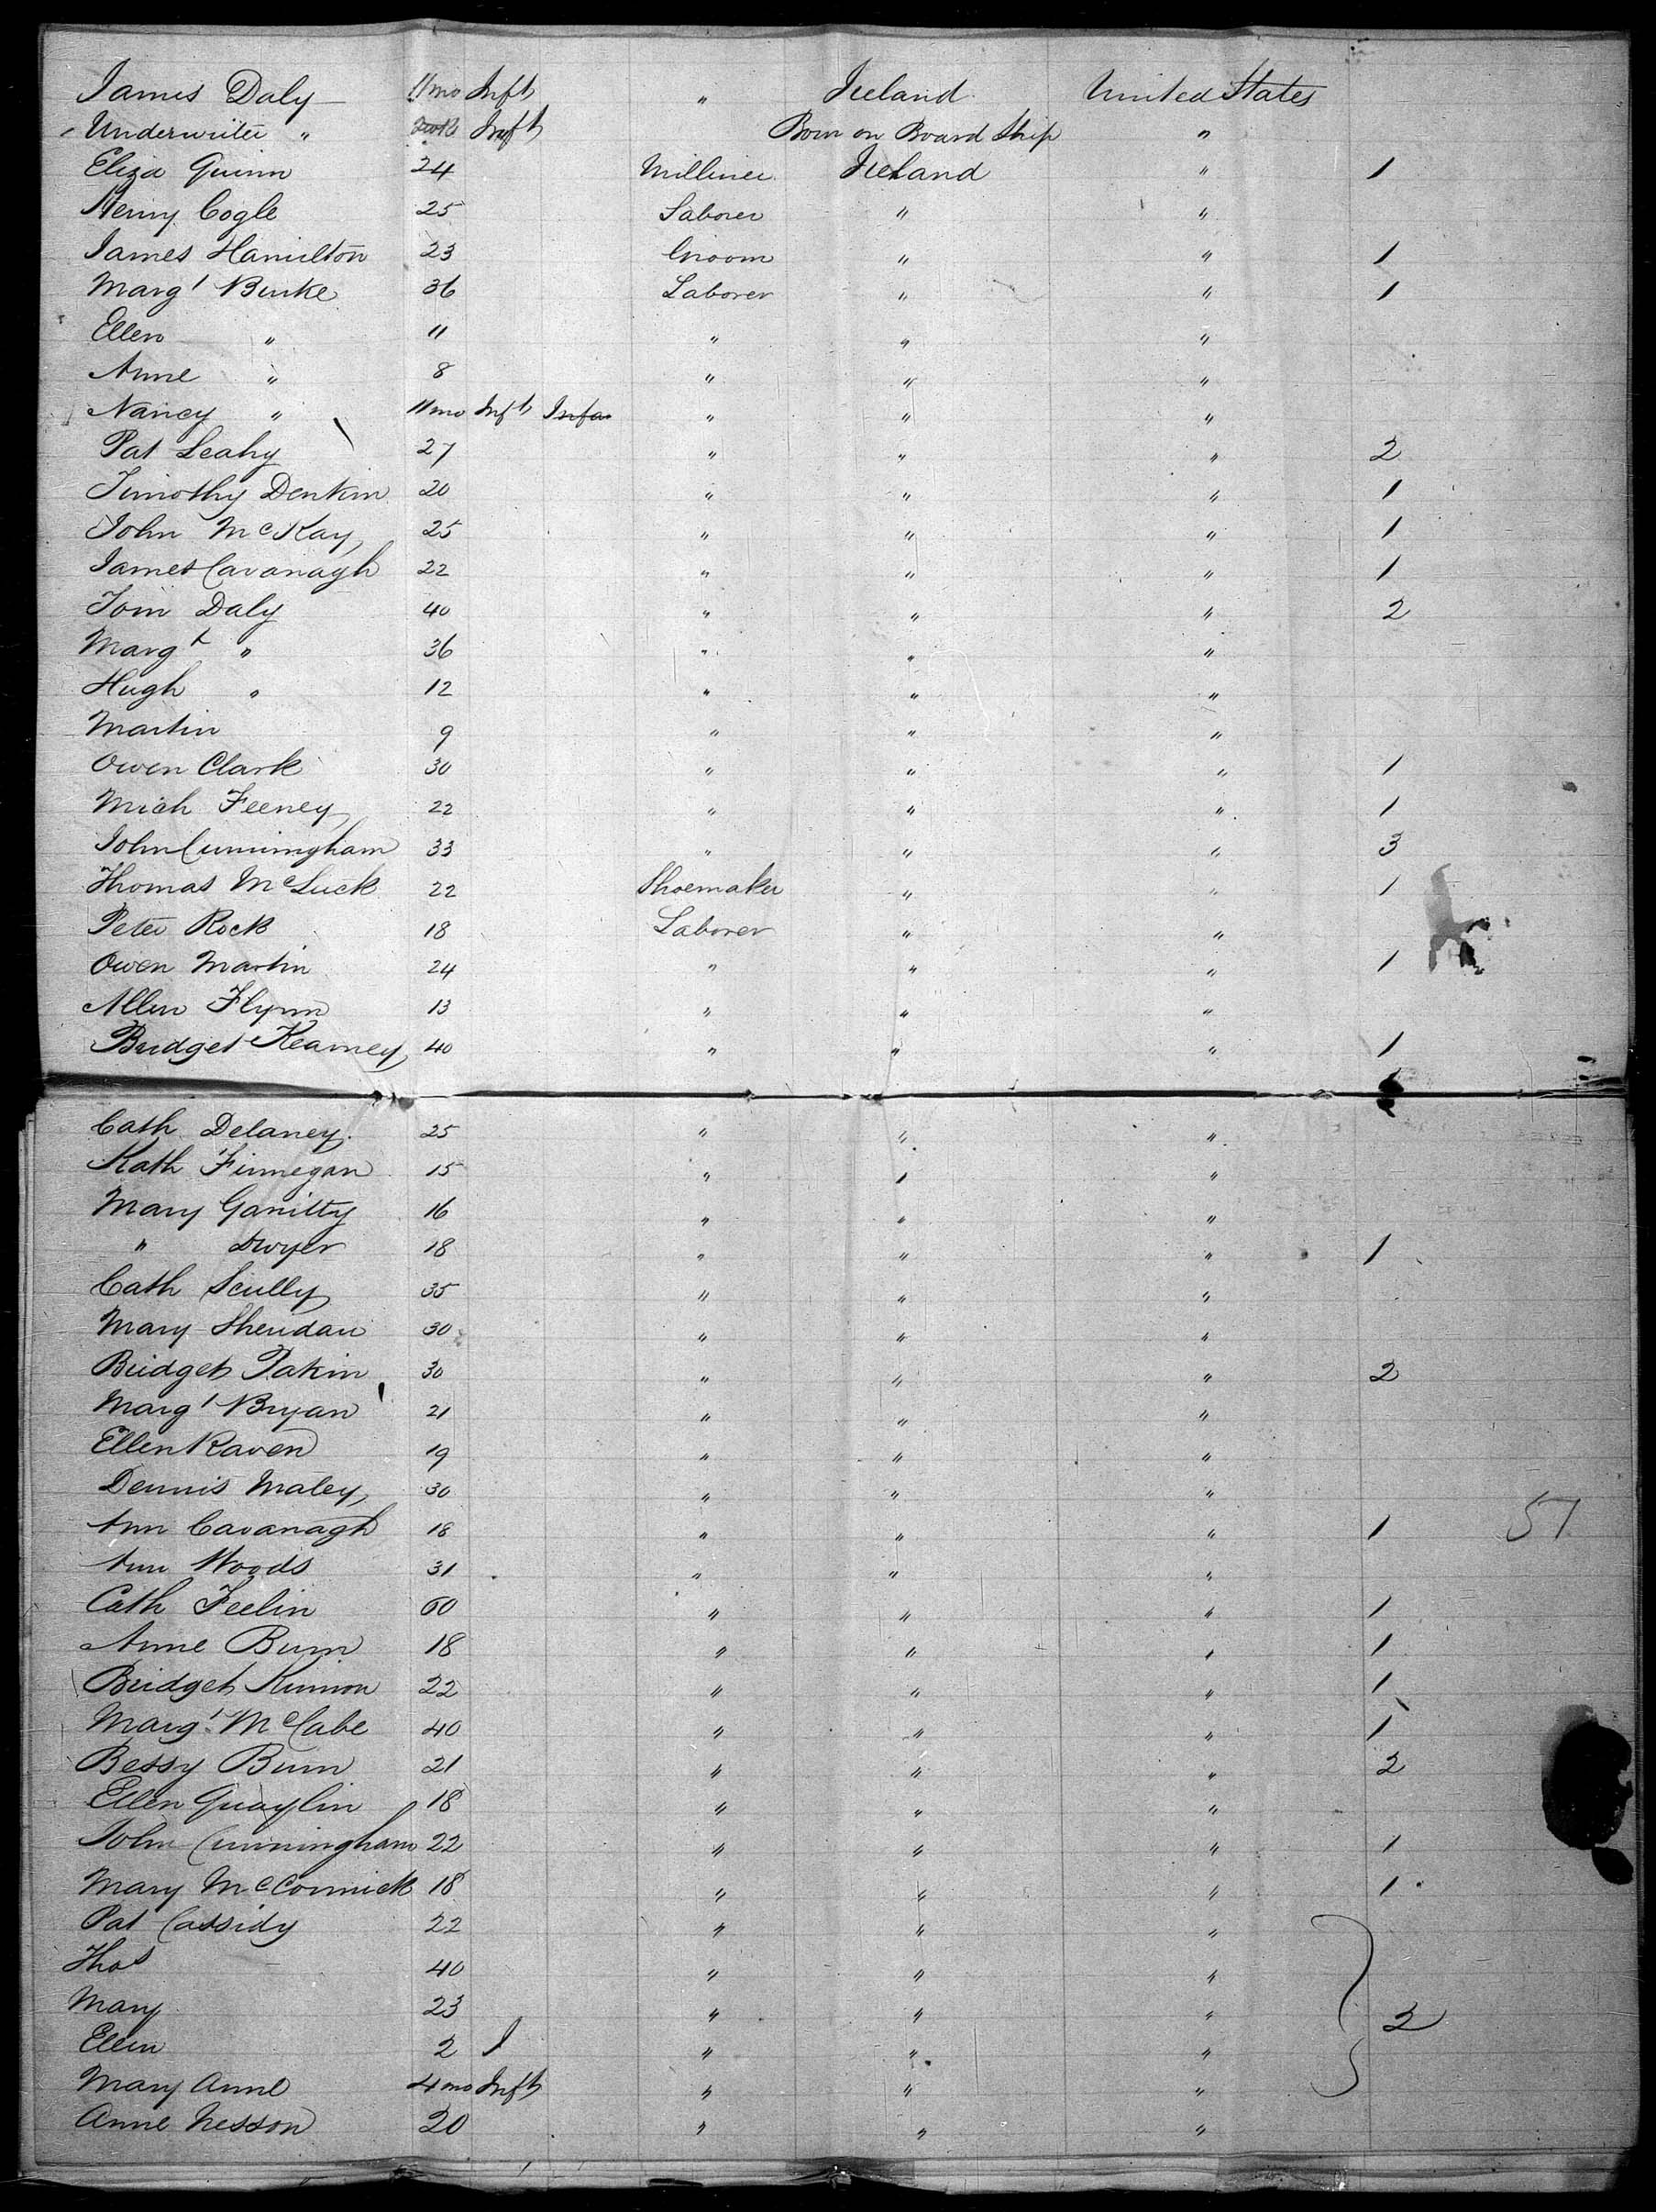 James Daly 11 mo Inft " Ireland United States
Underwriter " Inft Born on Board Ship "
Eliza Quinn 24 Milliner Ireland " 1
Henry Cogle 25 Laborer " "
James Hamilton 23 Groom " " 1
Margt Burke 36 Laborer " " 1
Ellen " 11 " " "
Anne " 8 " " "
Nancy " 11 mo Inft Infa " " "
Pat Leahy 27 " " " 2
Timothy Denkin 20 " " " 1
John McKay 25 " " " 1
James Cavanagh 22 " " " 1
Tom Daly 40 " " " 2
Margt " 36 " " "
Hugh " 12 " " "
Martin 9 " " "
Owen Clark 30 " " " 1
Mich Feeney 22 " " " 1
John Cunningham 33 " " " 3
Thomas McLuck 22 Shoemaker " " 1
Peter Rock 18 Laborer " "
Owen Martin 24 " " " 1
Allen Flynn 13 " " "
Bridget Kearney 40 " " " 1
Cath Delaney 25 " " "
Kath Finnegan 15 " " "
Mary Ganitty 16 " " "
" Dwyer 18 " " " 1
Cath Scully 35 " " "
Mary Sheridan 30 " " "
Bridget Pakin 30 " " " 2
Margt Bryan 21 " " "
Ellen Raven 19 " " "
Dennis Maley 30 " " "
Ann Cavanagh 18 " " " 1 57
Ann Woods 31 " " "
Cath Feelin 60 " " " 1
Anne Burn 18 " " " 1
Bridget Kinnon 22 " " " 1
Margt McCabe 40 " " " 1
Bessy Burn 21 " " " 2
Ellen Quaylin 18 " " "
John Cunningham 22 " " " 1
Mary McCormick 18 " " " 1
Pat Cassidy 22 " " "
Thos 40 " " "
Mary 23 " " " 2
Ellen 2 I " " "
Mary Anne 4 mo Inft " " "
Anne Nesson 20 " " "